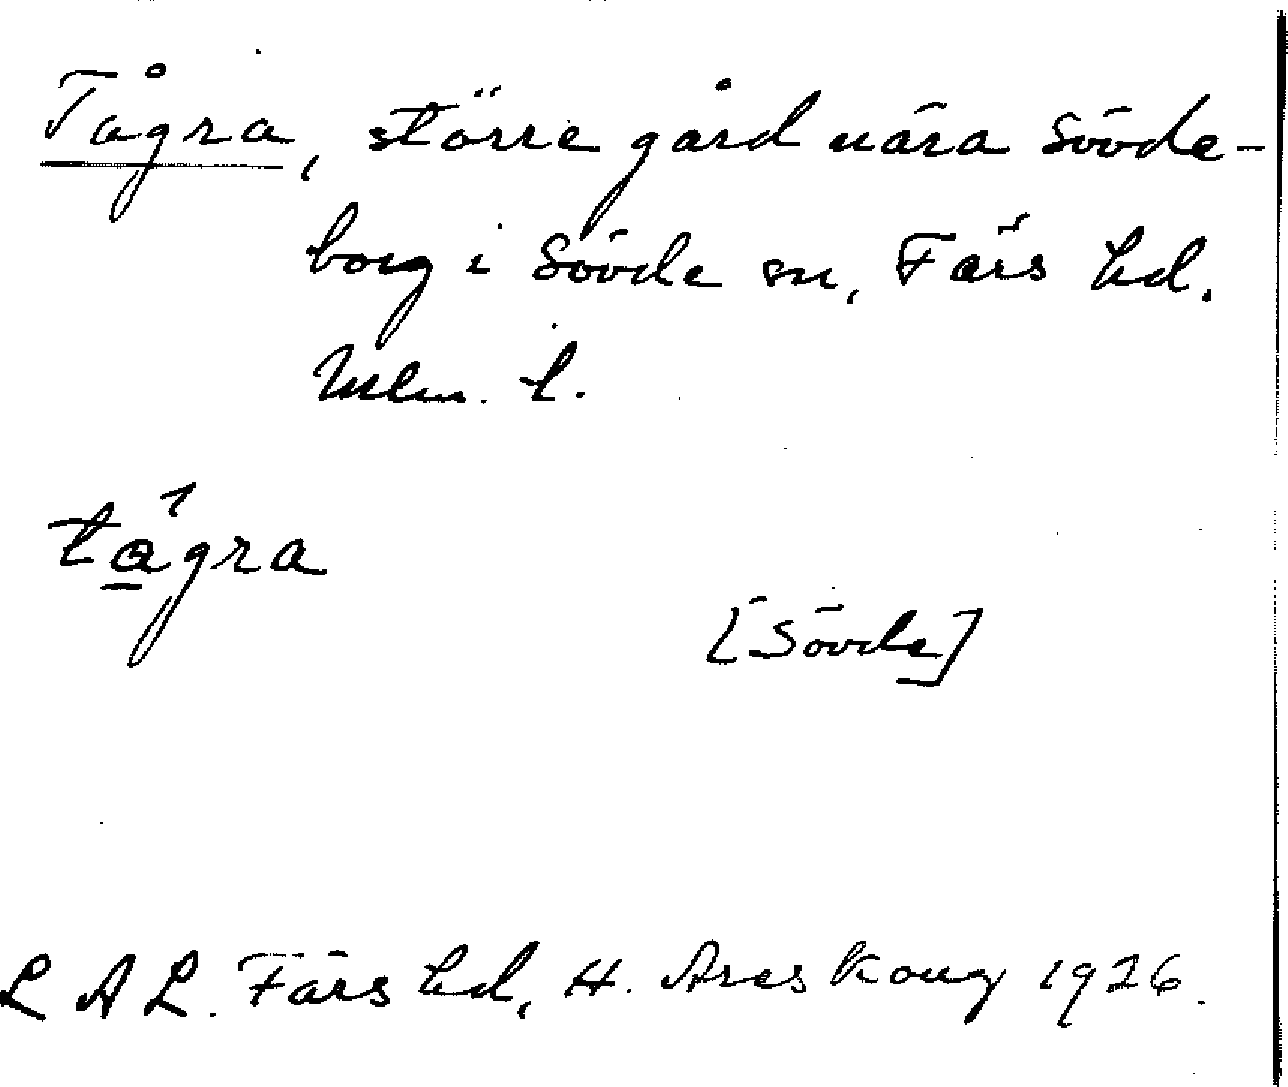 Tågra, större gård nära Sövde-
borg i Sövde sn, Färs hd.
Mlm. l.
tágra
[Sövde]
L A L. Färs hd, H. Areskoug 1926.